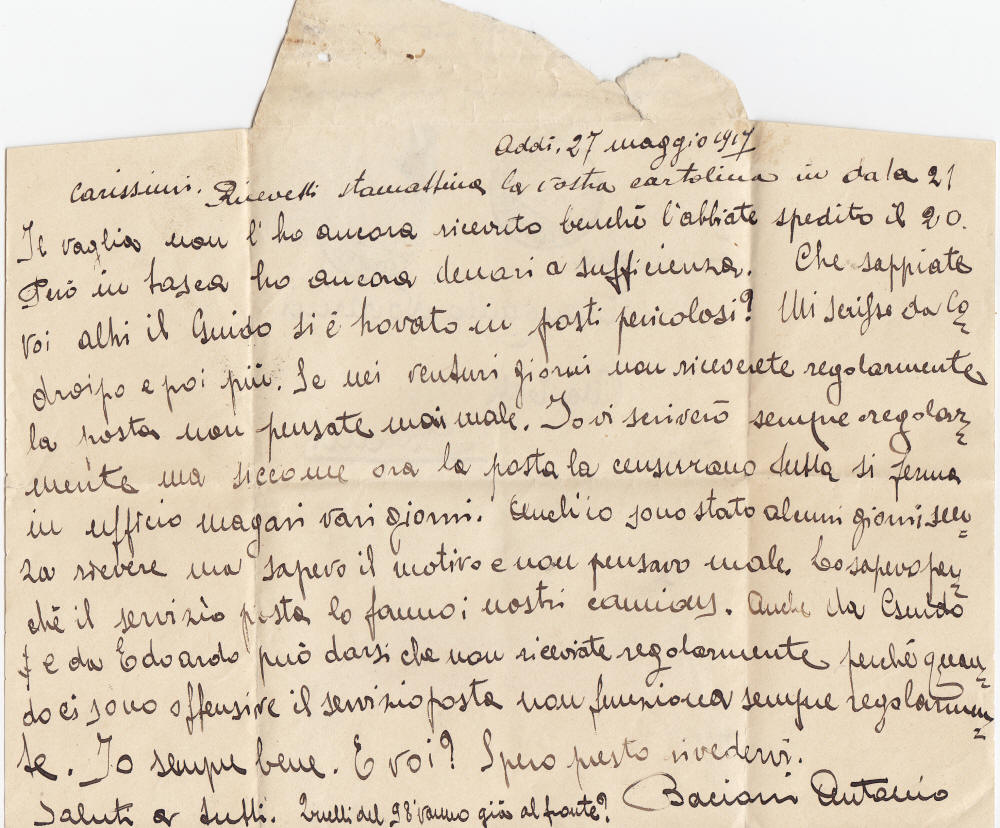 Addi, 27 maggio 1917
Carissimi. Ricevetti stamattina la vostra cartolina in data 21
Il vaglia non l'ho ancora ricevuto benchè l'abbiate spedito il 20.
Però in tasca ho ancora denari a sufficienza. Che sappiate
voi altri il Guido si è trovato in posti pericolosi? Mi scrisse da Co=
droipo e poi più. Se nei venturi giorni non riceverete regolarmente
la posta non pensate mai male. Io vi scriverò sempre regolar=
mente ma siccome ora la posta la censurano tutta si ferma
in ufficio magari vari giorni. Anch'io sono stato alcuni giorni sen=
za ricevere ma sapevo il motivo e non pensavo male. Lo sapevo per=
chè il servizio posta lo fanno i nostri camions. Anche da Guido
e da Edoardo può darsi che non riceviate regolarmente perchè quan=
do ci sono offensive il servizio posta non funziona sempre regolarmen=
te. Io sempre bene. E voi? Spero presto rivedervi.
Saluti a tutti. Quelli del 98 vanno già al fronte? Antonio